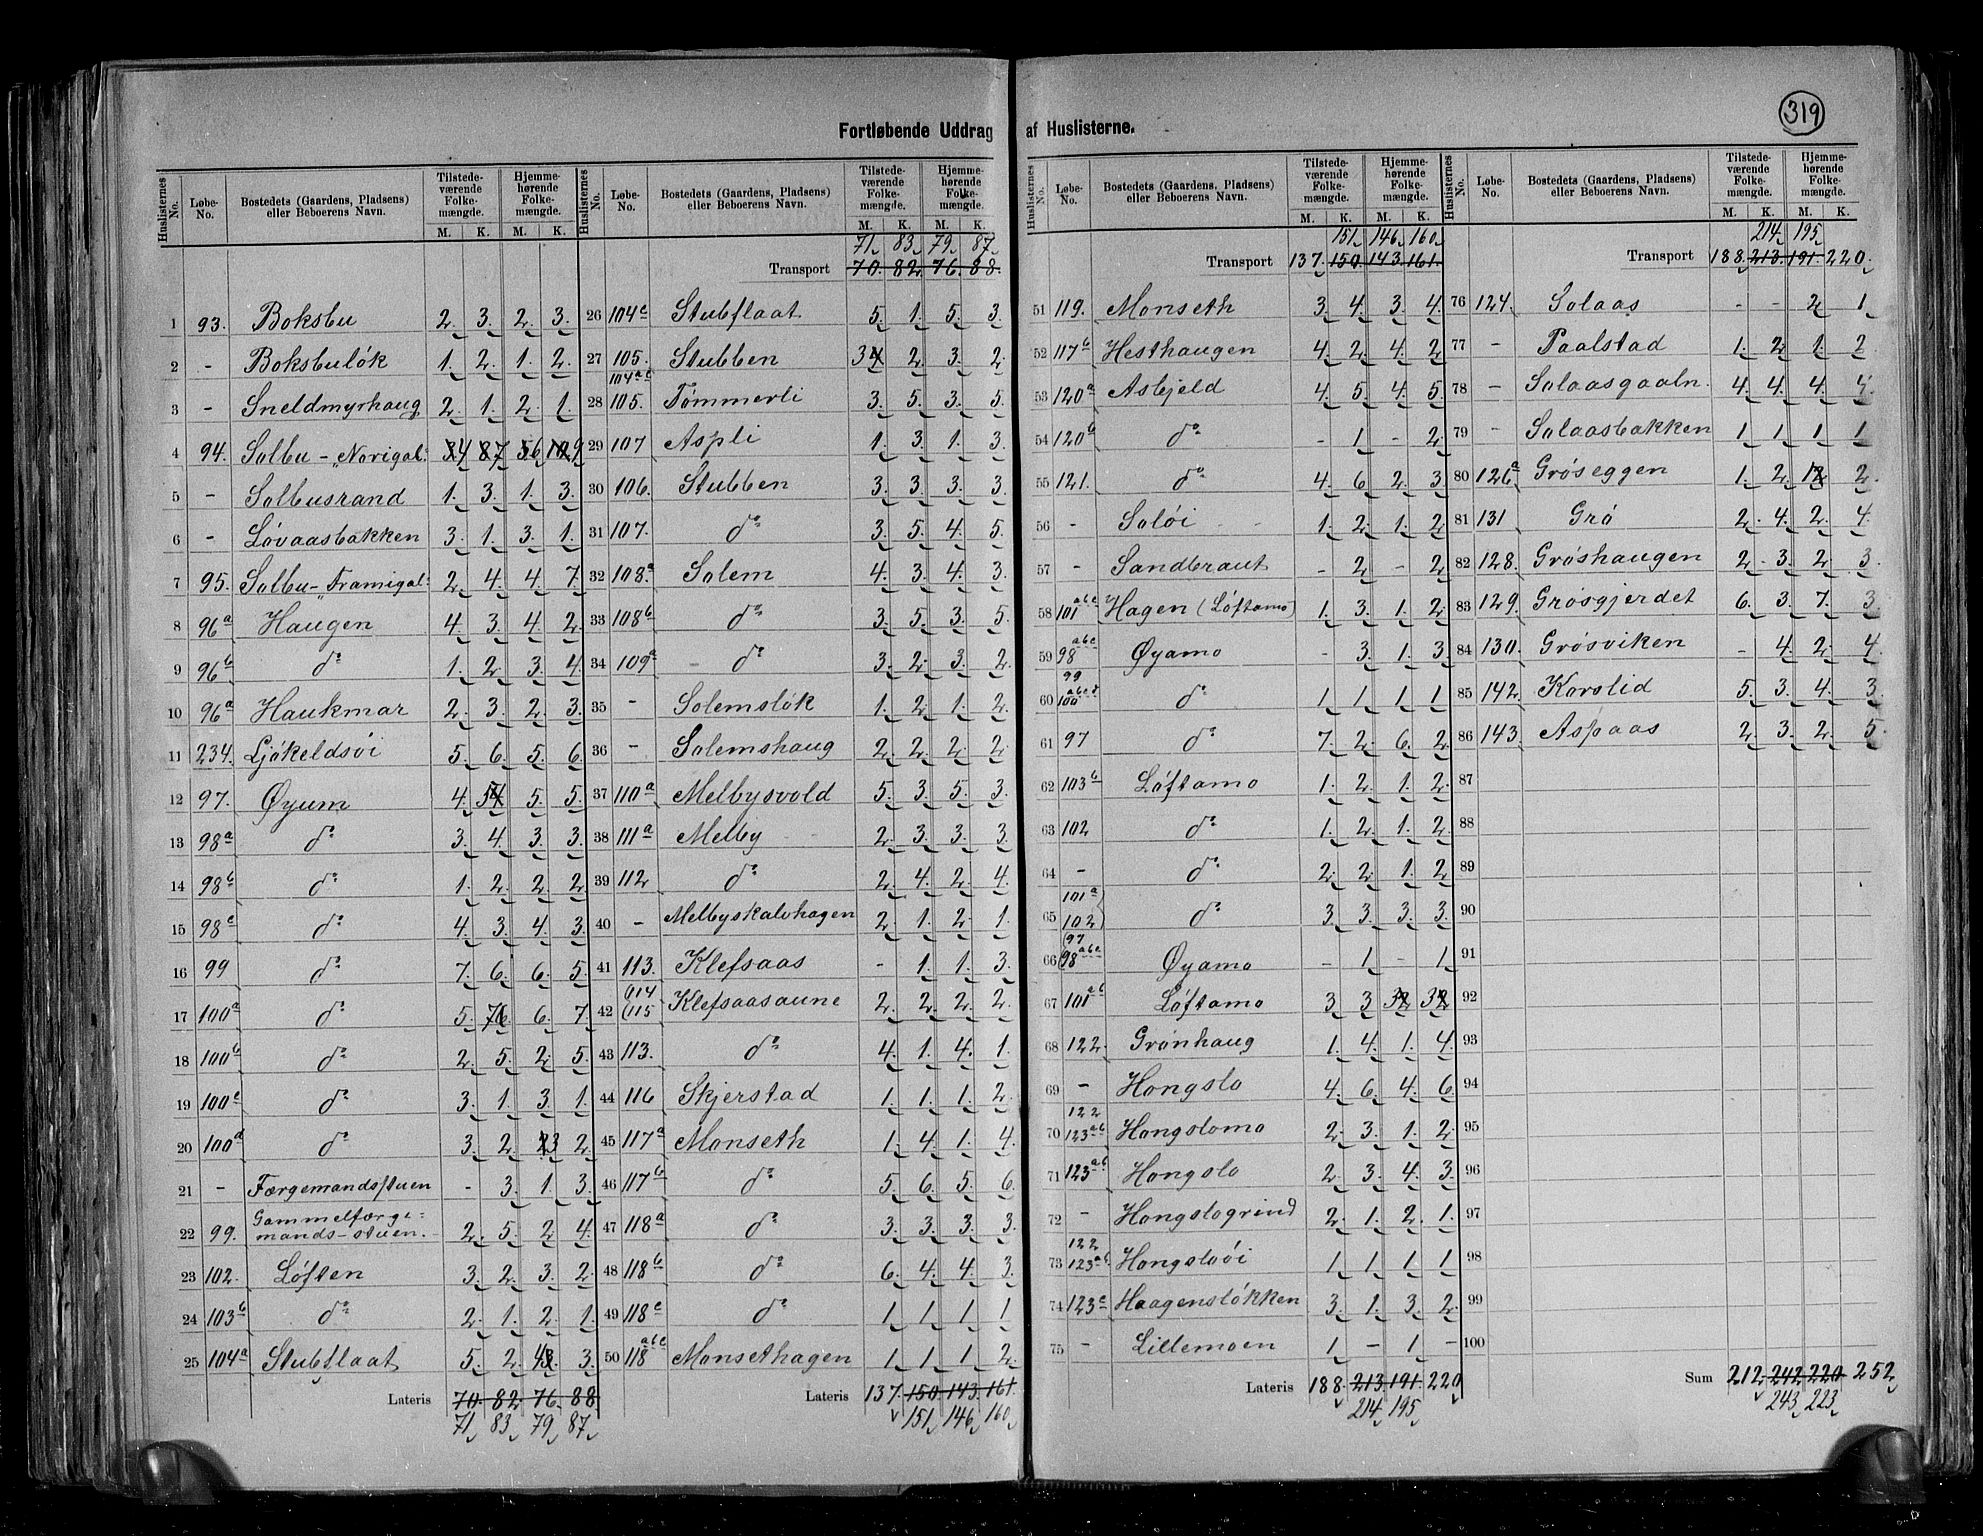 319
Fortløbende Uddrag af Huslisterne.
Huslisternes No. | Løbe-No. | Bostedets (Gaardens, Pladsens) eller Beboerens Navn. | Tilstedeværende Folkemængde. M. K. | Hjemmehørende Folkemængde. M. K.
1 93. Boksbu 2. 3. 2. 3.
2 - Boksbuløk 1. 2. 1. 2.
3 - Sneldmyrhaug 2. 1. 2. 1.
4 94. Solbu - "Norigal" 4 7 6 9
5 - Solbusrand 1. 3. 1. 3.
6 - Løvaasbakken 3. 1. 3. 1.
7 95. Solbu - "Framigal" 2. 4. 4. 7.
8 96a Haugen 4. 3. 4. 2.
9 96b do 1. 2. 3. 4.
10 96a Haukmar 2. 3. 2. 3.
11 234. Ljøkeldsøi 5. 6. 5. 6.
12 97. Øyum 4. 5 5. 5.
13 98a do 3. 4. 3. 3.
14 98b do 1. 2. 2. 2
15 98c do 4. 3. 4. 3.
16 99 do 7. 6. 6. 5.
17 100a do 5. 7 6. 7.
18 100b do 2. 5. 2. 5.
19 100c do 3. 1. 3. 1.
20 100d do 3. 2. 3 2.
21 - Færgemandsstuen - 3. 1. 3.
22 99. Gammelfærgemands-stuen. 2. 5. 2 4.
23 102. Løften 3. 2. 3. 2.
24 103b do 2. 1. 2 1.
25 104a Stubflaat 5. 2. 4 3.
Lateris 70. 82. 76. 88
71 83 79 87
71 83 79 87
Transport 70. 82. 76. 88.
26 104c Stubflaat 5. 1. 5. 3.
27 105. Stubben 3 2. 3. 2.
28 104a c 105. Tømmerli 3. 5. 3. 5.
29 107 Aspli 1. 3. 1. 3.
30 106. Stubben 3. 3. 3. 3.
31 107. do 3. 5. 4. 5.
32 108.a Solem 4. 3. 4. 3.
33 108b do 3. 5. 3. 5.
34 109a do 3. 2. 3. 2.
35 - Solemsløk 1. 2. 1. 2.
36 - Solemshaug 2. 2. 2. 2.
37 110a Melbysvold 5. 3. 5. 3.
38 111a Melby 2. 3. 3. 3.
39 112 do 2. 4. 2. 4.
40 - Melbyskalvhagen 2. 1. 2. 1.
41 113. Klefsaas - 1. 1. 3.
42 114 115 Klefsaasaune 2. 2. 2. 2.
43 113. do 4. 1. 4. 1.
44 116 Skjerstad 1. 1. 1. 2.
45 117a Monseth 1. 4. 1. 4.
46 117b do 5. 6. 5. 6.
47 118a do 3. 3. 3. 3.
48 118b do 6. 4. 4. 3.
49 118c do 1 1 1 1
50 118abc Monsethagen 1 1 1 2.
Lateris 137. 150. 143. 161.
151 146 160
151 146 160
Transport 137. 150. 143. 161.
51 119. Monseth 3. 4. 3. 4.
52 117b Hesthaugen 4. 2. 4. 2
53 120a Asbjeld 4. 5. 4. 5.
54 120b do - 1 - 2.
55 121. do 4. 6. 2. 3.
56 - Soløi 1. 2. 1. 2
57 - Sandbraut - 2 - 2.
58 101abc Hagen (Løftamo) 1. 3. 1. 2.
59 98abc Øyamo - 3. 1. 3.
60 99 100abcd do 1 1 1 1
61 97 do 7. 2. 6. 2.
62 103b Løftamo 1. 2. 1. 2.
63 102 do 1. 2. 1. 2.
64 - do 2. 2. 1. 2.
65 101a 102 do 3. 3. 3. 3.
66 97 98abc Øyamo - 1 - 1
67 101ab Løftamo 3. 3 3 3
68 122. Grønhaug 1. 4. 1. 4.
69 - Hongslo 4. 6. 4. 6.
70 122 123ab Hongslomo 2. 3. 1. 2.
71 123ab Hongslo 2. 3. 4. 3.
72 - Hongslogrind 2. 1. 2. 1.
73 122 123ab Hongsloøi 1 1 1 1
74 123c Haagensløkken 3. 1. 3. 2.
75 - Lillemoen 1 - 1 -
Lateris 188. 213. 191. 220
214 195
214 195
Transport 188. 213. 191. 220.
76 124. Solaas - - 2. 1.
77 - Paalstad 1. 2. 1. 2
78 - Solaasgaaln. 4. 4. 4. 4.
79 - Solaasbakken 1 1 1 1
80 126a Grøseggen 1. 2. 1 2.
81 131 Grø 2. 4. 2. 4.
82 128. Grøshaugen 2. 3. 2. 3.
83 129. Grøsgjerdet 6. 3. 7. 3.
84 130. Grøsviken - 4. 2. 4.
85 142. Korslid 5. 3. 4. 3.
86 143. Aspaas 2. 3. 2. 5.
87
88
89
90
91
92
93
94
95
96
97
98
99
100
Sum 212. 242. 220. 252
243 223